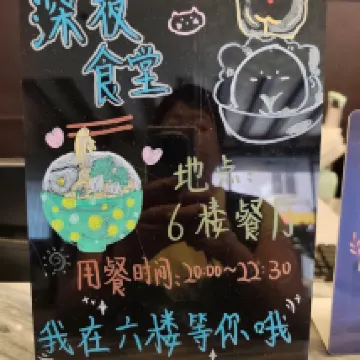 深夜
食堂
地点:
6楼餐厅
用餐时间:20:00~22:30
我在六楼等你哦